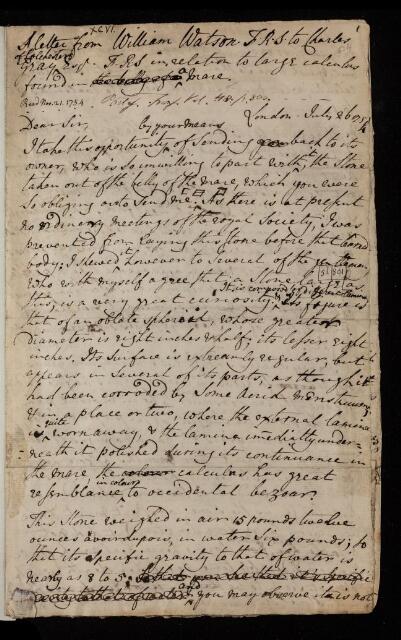 XCVI.
A Letter from William Watson F.R.S to Charles
of Colchester
Gray Esqr. F.R.S in relation to large calculus
found in the belly of a mare.
Read Nov. 21. 1754.
London July 26 1754
Dear Sir, by your means
I take this opportunity of sending back to its
owner, who is so unwilling to part with it, the Stone
taken out of the belly of the mare, which you were
so obliging as to send me. As there is at present
no ordinary meetings of the royal Society, I was
prevented from laying this Stone before that learned
body; I shewed however to several of the gentlemen,
who with myself agree that, a Stone so large as
this, is a very great curiosity. Its figure is
that of an oblate spheroid, whose greater
diameter is eight inches & half; its lesser eight
inches. Its surface is extreamly regular, but it
appears in several of its parts, as though it
had been corroded by some acrid menstruum;
& in a place or two, where the external lamina
is quite worn away & the lamina imediatly under-
neath it polished during its continuance in
the mare the colour calculus has great
in colour
resemblance to occidental bezoar.
This Stone weighed in air 15 pounds twelve
ounces avoirdupois, in water six pounds; so
that its specific gravity to that of water is
nearly as 8 to 5.
and you may observe it is not